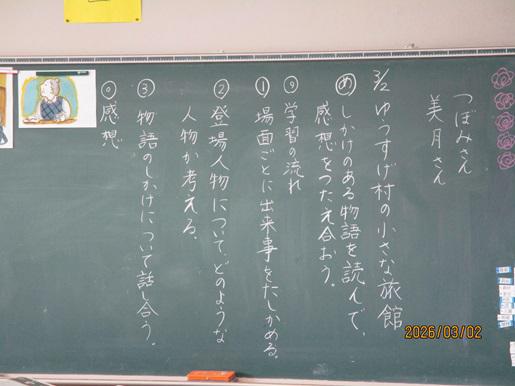 つぼみさん
美月さん
3/2 ゆうすげ村の小さな旅館
め しかけのある物語を読んで、
感想をつたえ合おう。
学習の流れ
① 場面ごとに出来事をたしかめる。
② 登場人物について、どのような
人物か考える。
③ 物語のしかけについて話し合う。
感想
2026/03/02